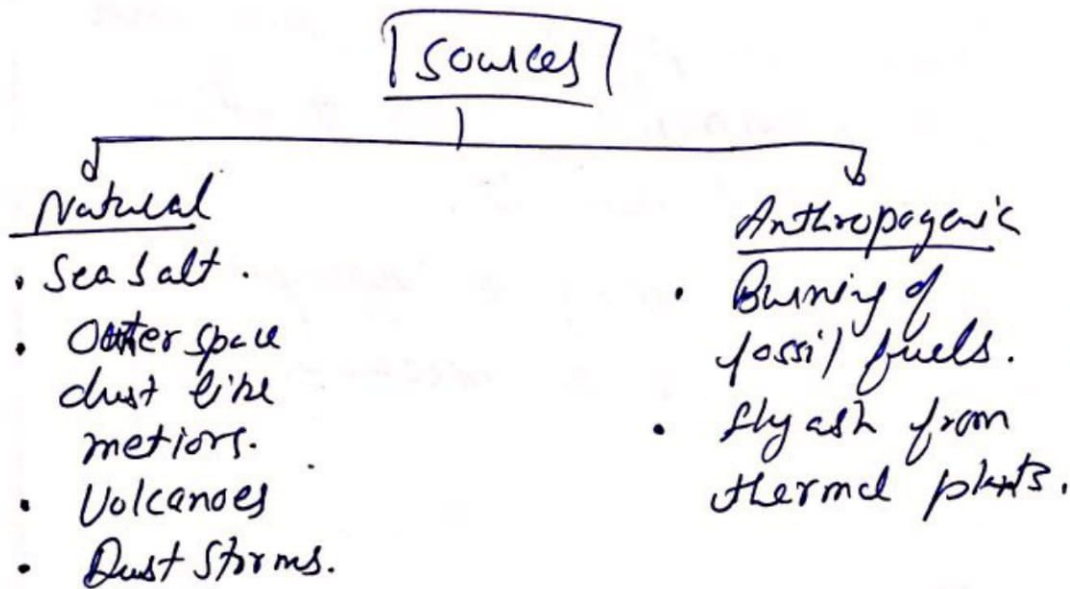 Sources
Natural
• Sea salt.
• Outer space
dust like
metiors.
• Volcanoes
• Dust Storms.
Anthropogenic
• Burning of
fossil fuels.
• fly ash from
thermal plants.